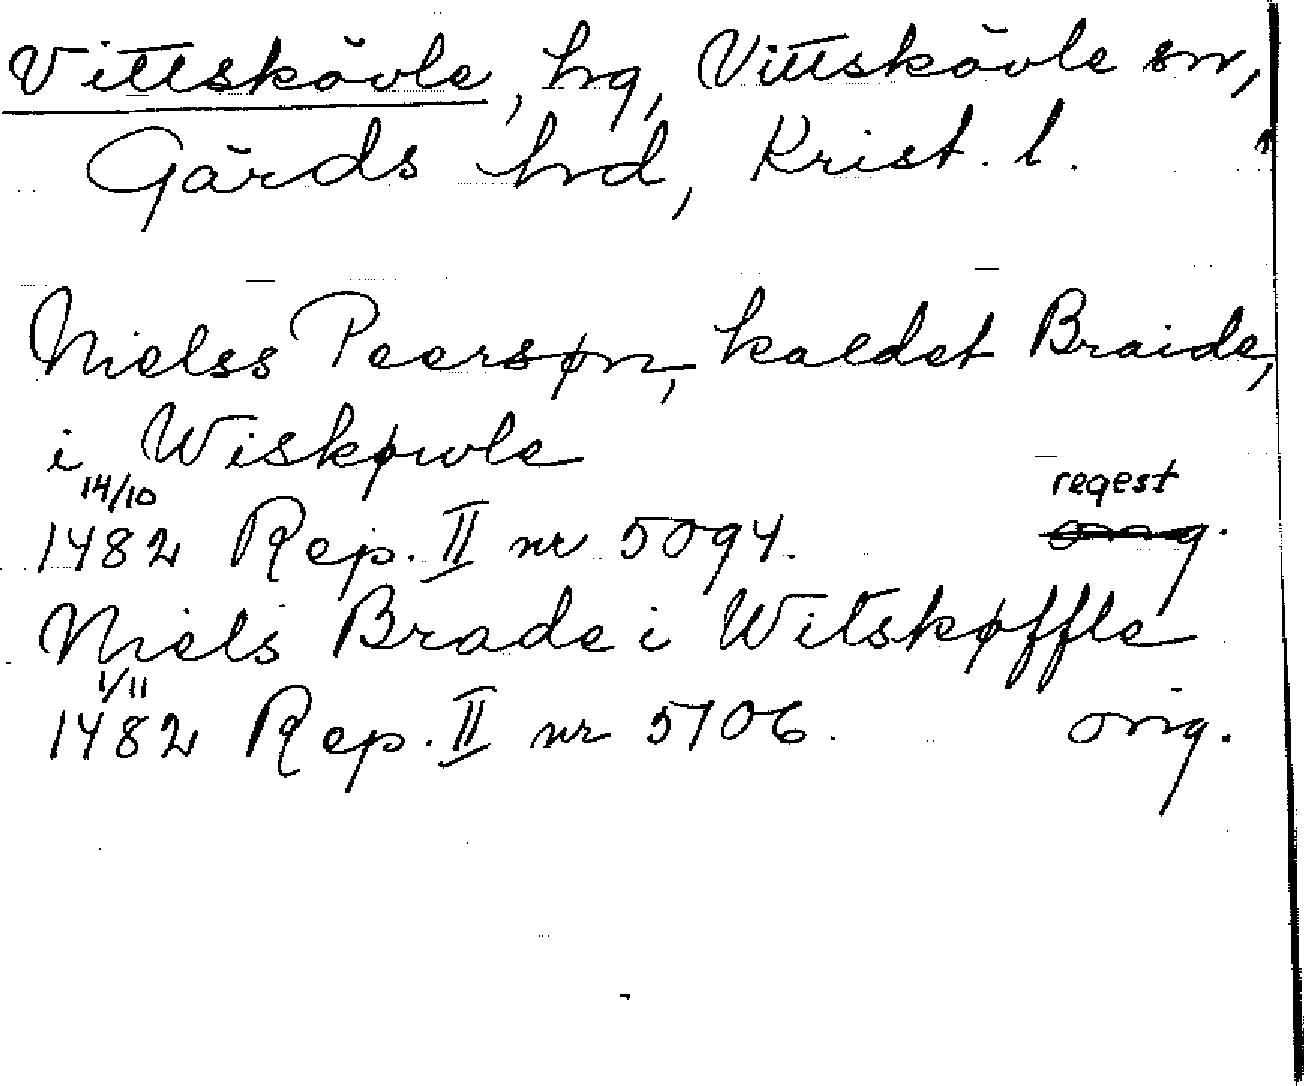 Vittskövle, hg, Vittskövle sn,
Gärds hrd, Krist. l.
Nielss Peersøn, kaldet Braide,
i Wiskøwle
14/10 regest
1482 Rep. II nr 5094. orig.
Niels Brade i Witskøffle
1/11
1482 Rep. II nr 5106. orig.